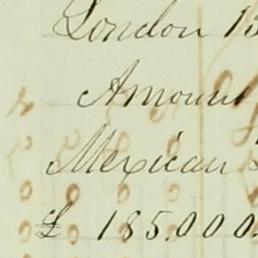 London 13
Amount
Mexican
£ 185.000.